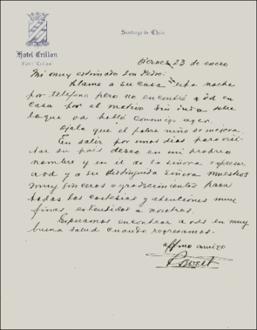 Hotel Crillon
Santiago de Chile
Viernes 23 de enero
Mi muy estimado don Pedro:
Llame a su casa esta noche
por teléfono pero no encontré a Ud en
casa por el motivo sin duda sobre
lo que va habló conmigo ayer.
Ojala que el pobre niño se mejora.
En salir por unos dias para
su pais deseo en mi propio
nombre y en el de la señora expresar
a vd y a su distinguida señora nuestros
muy sinceros agradecimientos para
todas las cortesias y atenciones muy
finas extendidos a nosotros.
Esperamos encontrar a vds en muy
buena salud cuando regresamos.
affmo amigo